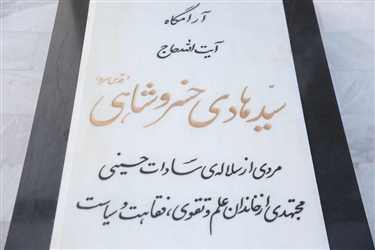 آرامگاه
آیت الله حاج
سیّد هادی خسروشاهی
مردی از سلاله‌ی سادات حسینی
مجتهدی از خاندان علم و تقوی، فقاهت و سیاست